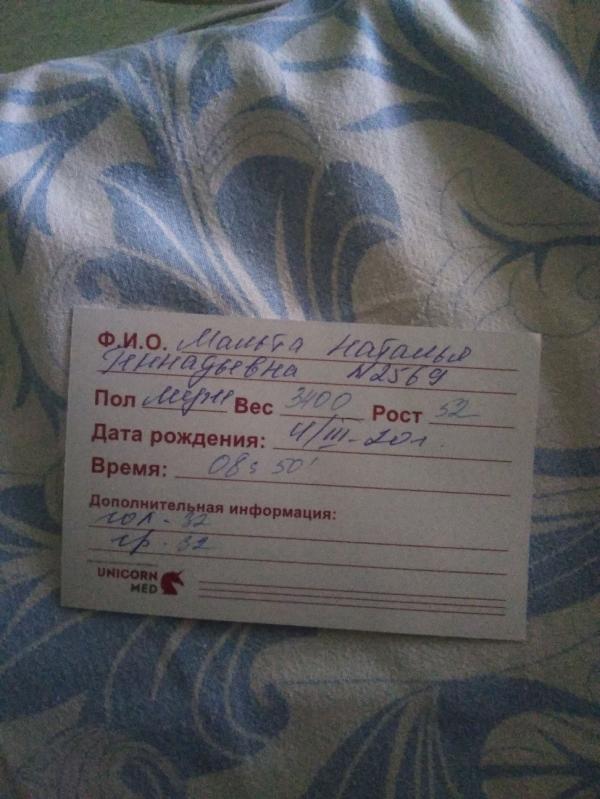 Ф.И.О. Мальта Наталья
Геннадьевна N2569
Пол Вес 3400 Рост 52
Дата рождения: /III-20г.
Время: 08 50'
Дополнительная информация:
гол - 32
гр. 32
UNICORN
MED